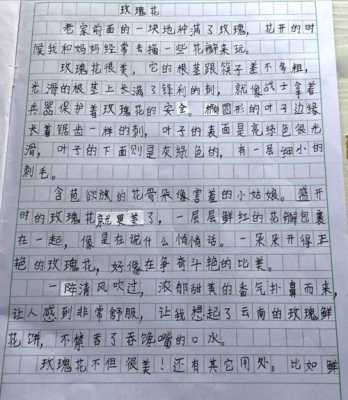 玫瑰花
老家前面的一块地种满了玫瑰,花开的时
候我和妈妈经常去摘一些花瓣来玩。
玫瑰花很美,它的根茎跟筷子差不多粗,
光滑的根茎上长满了锋利的刺,就像战士拿着
兵器保护着玫瑰花的安全。椭圆形的叶子边缘
长着锯齿一样的刺,叶子的表面是亮绿色很光
滑,叶子的下面则是灰绿色的,有一层细小的
刺毛。
含苞欲放的花骨朵像害羞的小姑娘。盛开
时的玫瑰花就更美了,一层层鲜红的花瓣包裹
在一起,像是在说什么悄悄话。一朵朵开得正
艳的玫瑰花,好像在争奇斗艳的比美。
一阵清风吹过,浓郁甜美的香气扑鼻而来,
让人感到非常舒服,让我想起了云南的玫瑰鲜
花饼,不禁舌了吞馋嘴的口水。
玫瑰花不但很美!还有其它用处,比如鲜